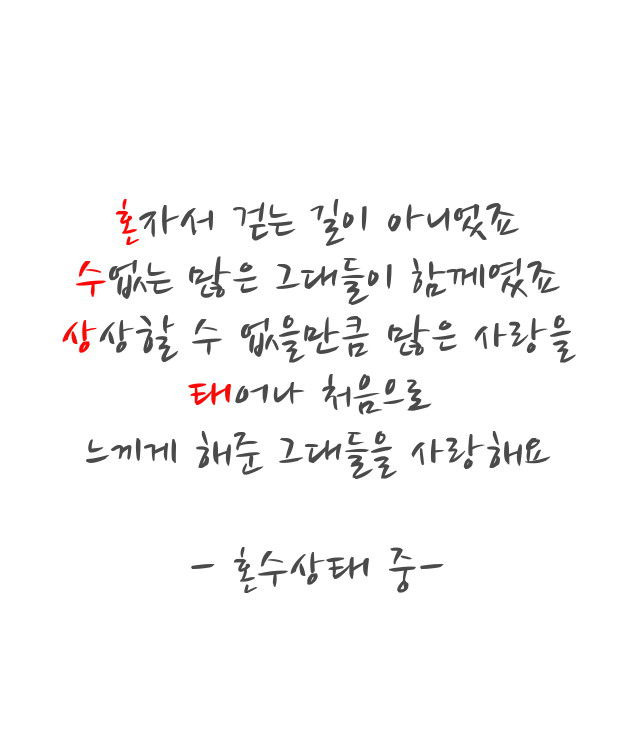 혼자서 걷는 길이 아니었죠
수없는 많은 그대들이 함께였죠
상상할 수 없을만큼 많은 사랑을
태어나 처음으로
느끼게 해준 그대들을 사랑해요
- 혼수상태 중-